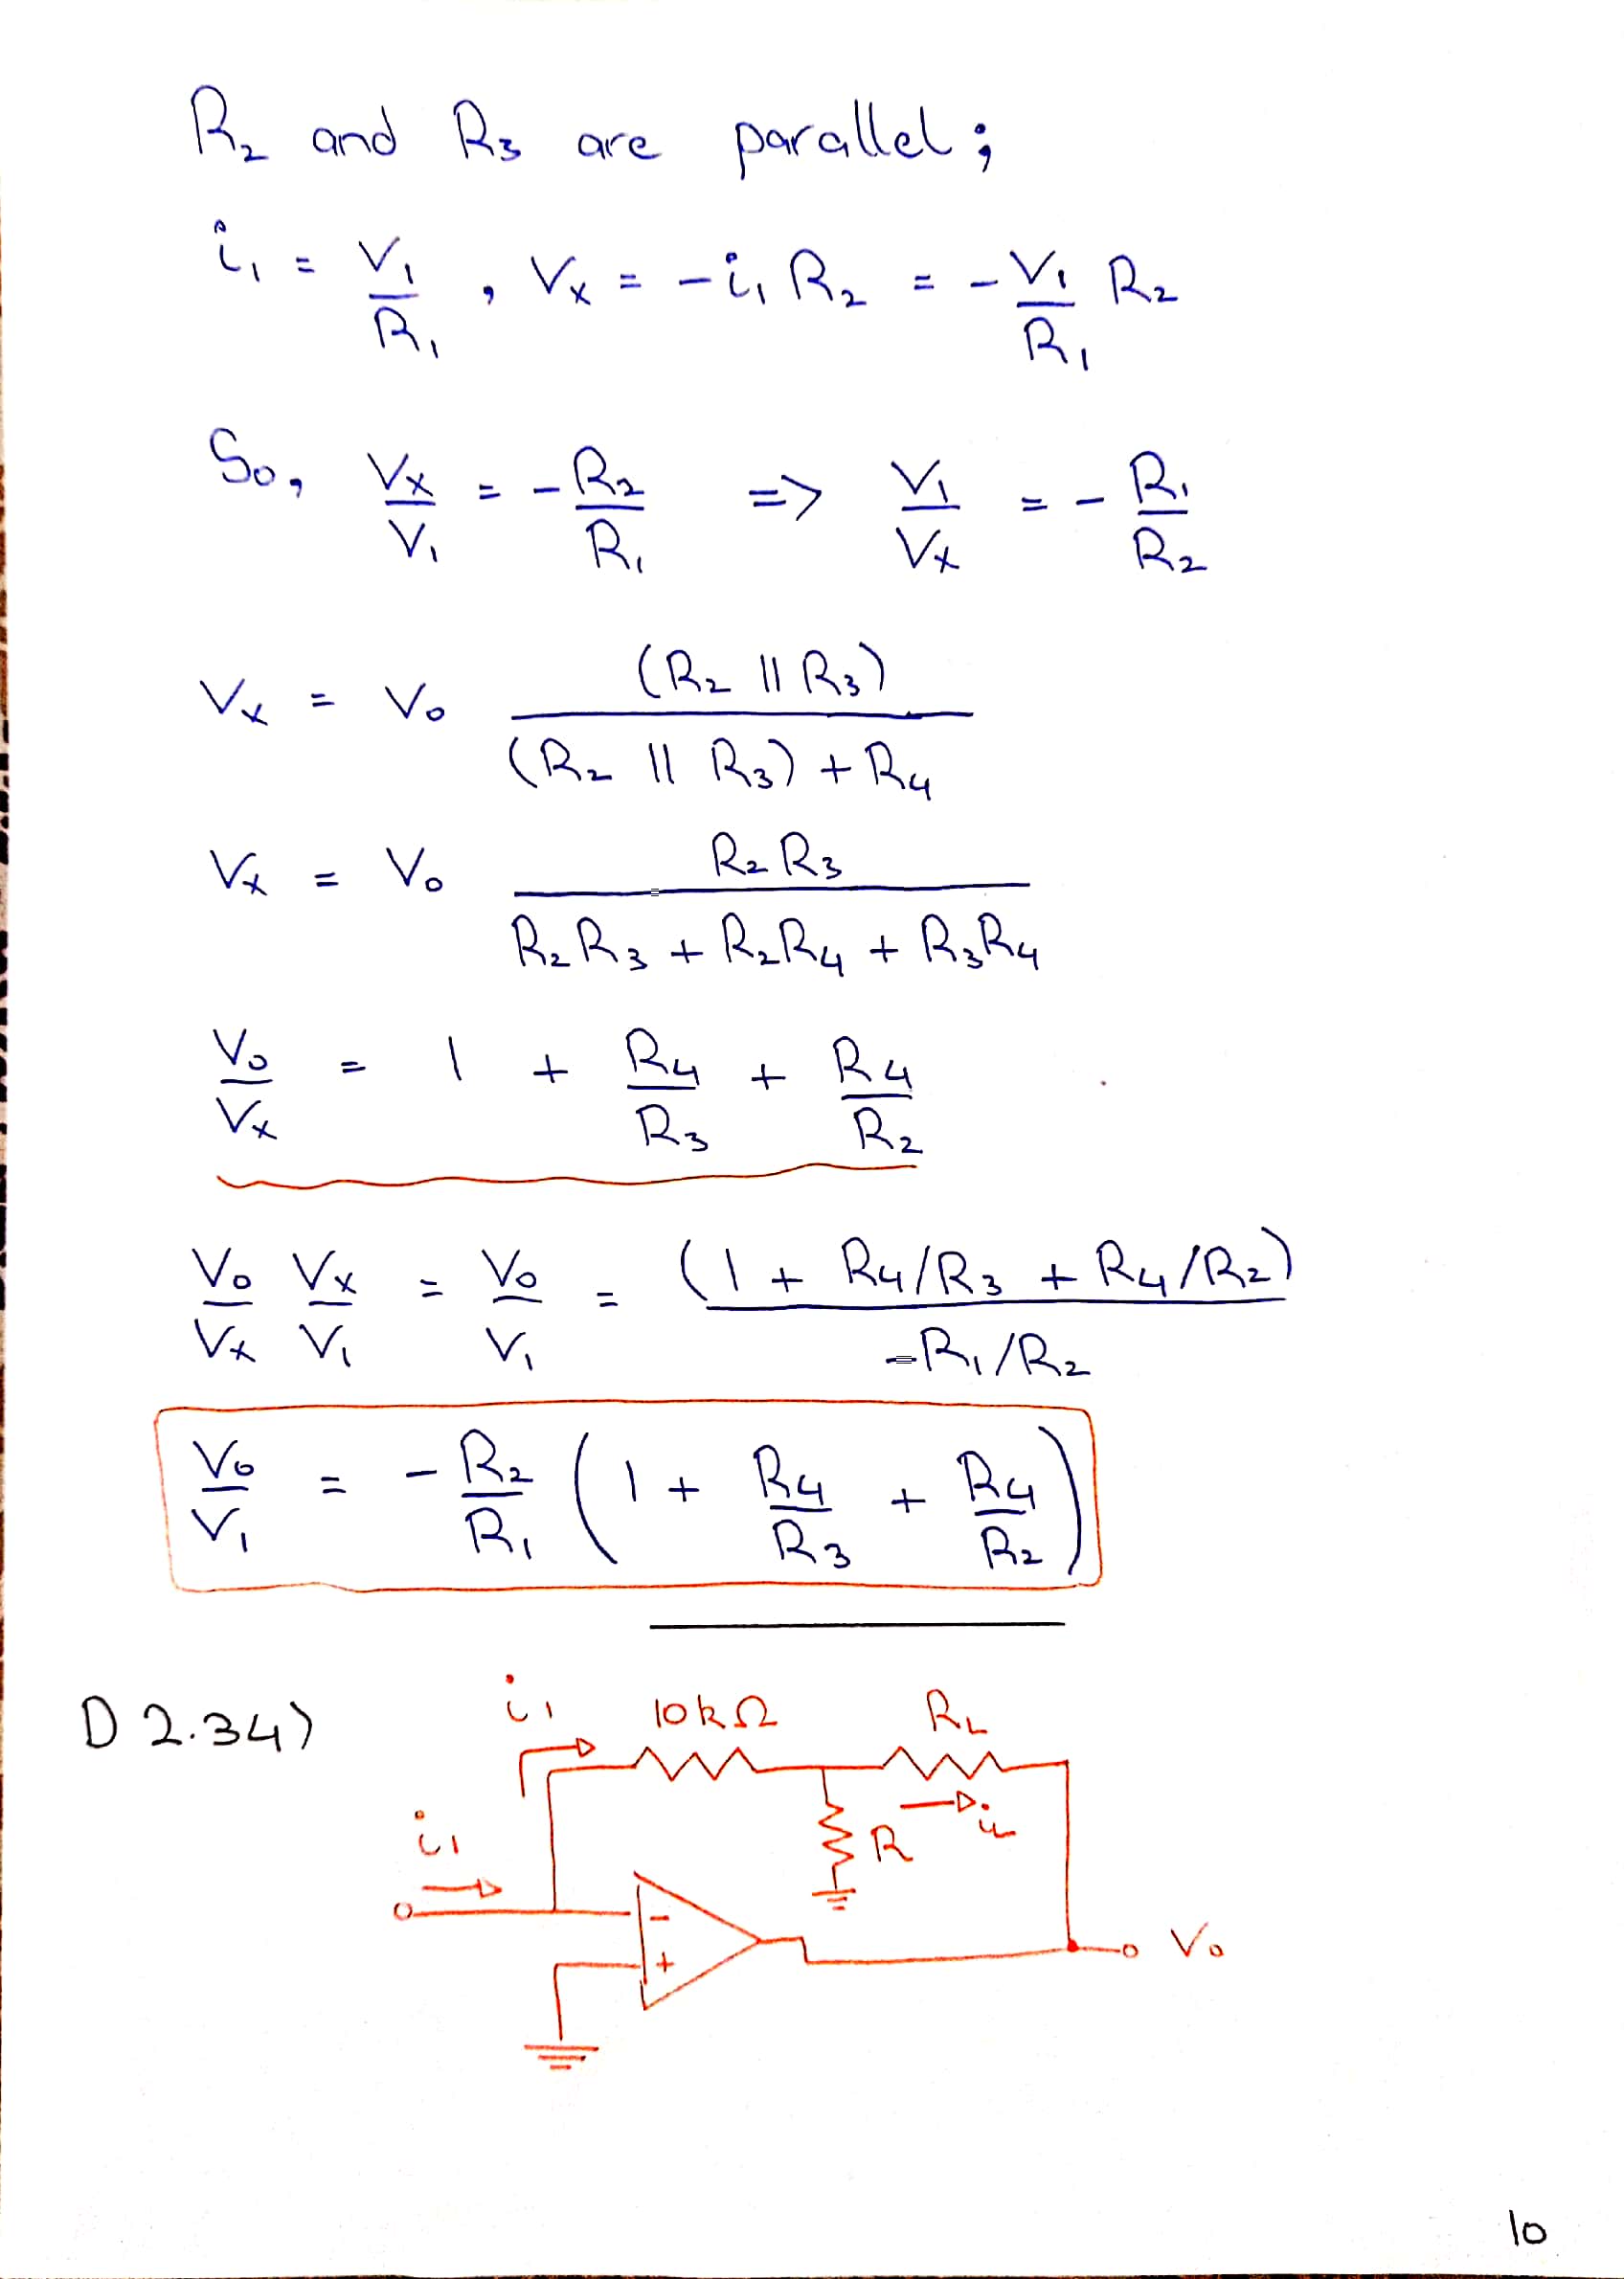 R₂ and R₃ are parallel;
i₁ = V₁/R₁ , Vx = -i₁ R₂ = -V₁/R₁ R₂
So, Vx/V₁ = -R₂/R₁ => V₁/Vx = -R₁/R₂
Vx = Vo (R₂ || R₃)/((R₂ || R₃) + R₄)
Vx = Vo R₂R₃/(R₂R₃ + R₂R₄ + R₃R₄)
Vo/Vx = 1 + R₄/R₃ + R₄/R₂
Vo/Vx Vx/V₁ = Vo/V₁ = (1 + R₄/R₃ + R₄/R₂)/(-R₁/R₂)
Vo/V₁ = -R₂/R₁ (1 + R₄/R₃ + R₄/R₂)
D 2.34)
i₁ 10kΩ RL
i₁
R iL
-
+
Vo
10